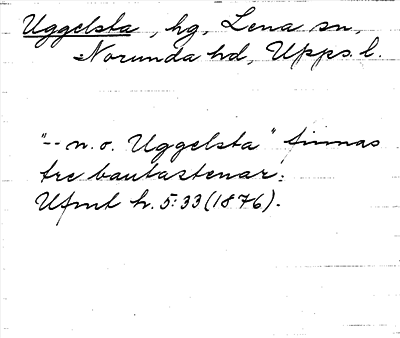 Uggelsta, hg, Lena sn,
Norunda hd, Upps. l.
"-- n. o. Uggelsta" finnas
tre bautastenar.
Ufmt h. 5:33 (1876).